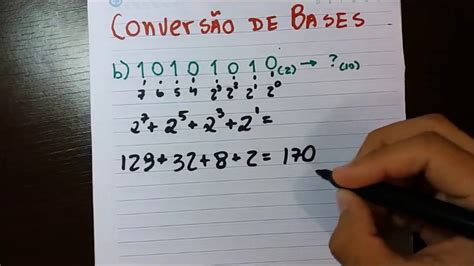 CONVERSÃO DE BASES
b) 1 0 1 0 1 0 1 0 (2) → ? (10)
7 6 5 4 2³ 2² 2¹ 2⁰
2⁷ + 2⁵ + 2³ + 2¹ =
129 + 32 + 8 + 2 = 170